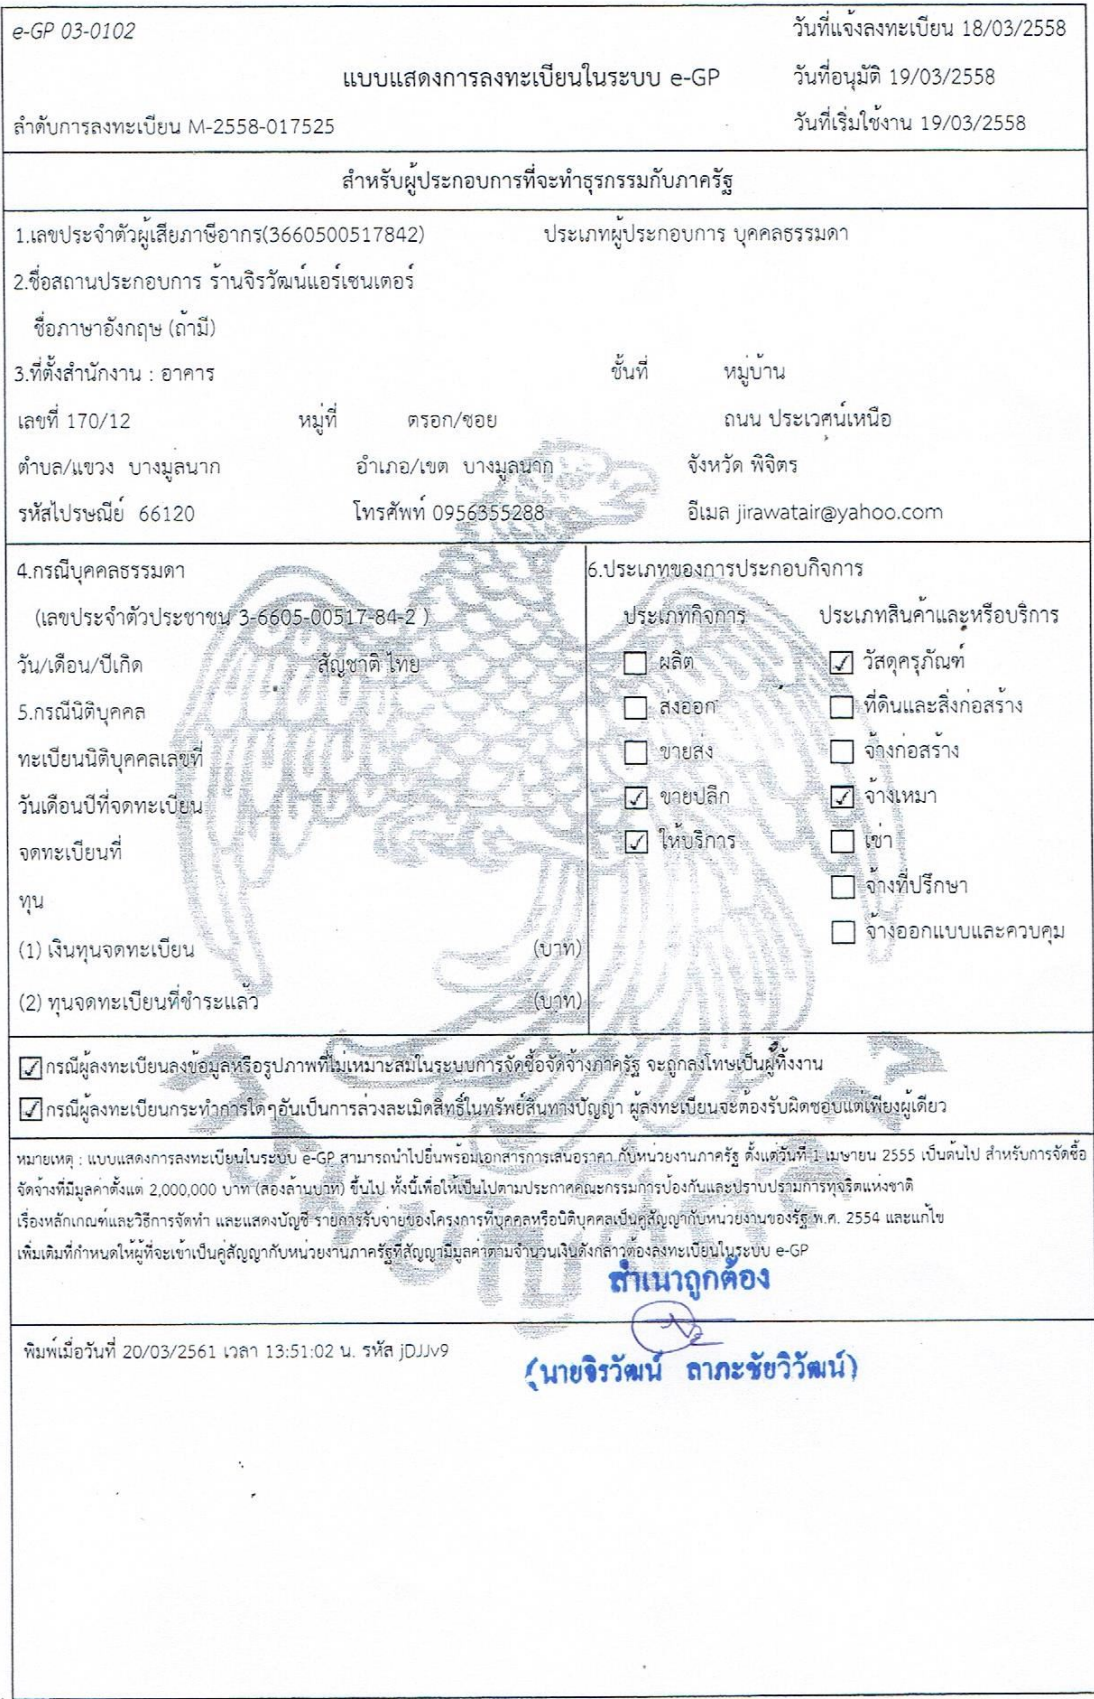 e-GP 03-0102
วันที่แจ้งลงทะเบียน 18/03/2558
แบบแสดงการลงทะเบียนในระบบ e-GP
วันที่อนุมัติ 19/03/2558
ลำดับการลงทะเบียน M-2558-017525
วันที่เริ่มใช้งาน 19/03/2558
สำหรับผู้ประกอบการที่จะทำธุรกรรมกับภาครัฐ
1.เลขประจำตัวผู้เสียภาษีอากร(3660500517842) ประเภทผู้ประกอบการ บุคคลธรรมดา
2.ชื่อสถานประกอบการ ร้านจิรวัฒน์แอร์เซนเตอร์
ชื่อภาษาอังกฤษ (ถ้ามี)
3.ที่ตั้งสำนักงาน : อาคาร ชั้นที่ หมู่บ้าน
เลขที่ 170/12 หมู่ที่ ตรอก/ซอย ถนน ประเวศน์เหนือ
ตำบล/แขวง บางมูลนาก อำเภอ/เขต บางมูลนาก จังหวัด พิจิตร
รหัสไปรษณีย์ 66120 โทรศัพท์ 0956355288 อีเมล jirawatair@yahoo.com
4.กรณีบุคคลธรรมดา
(เลขประจำตัวประชาชน 3-6605-00517-84-2 )
วัน/เดือน/ปีเกิด สัญชาติ ไทย
5.กรณีนิติบุคคล
ทะเบียนนิติบุคคลเลขที่
วันเดือนปีที่จดทะเบียน
จดทะเบียนที่
ทุน
(1) เงินทุนจดทะเบียน (บาท)
(2) ทุนจดทะเบียนที่ชำระแล้ว (บาท)
6.ประเภทของการประกอบกิจการ
ประเภทกิจการ ประเภทสินค้าและหรือบริการ
☐ ผลิต ☑ วัสดุครุภัณฑ์
☐ ส่งออก ☐ ที่ดินและสิ่งก่อสร้าง
☐ ขายส่ง ☐ จ้างก่อสร้าง
☑ ขายปลีก ☑ จ้างเหมา
☑ ให้บริการ ☐ เช่า
☐ จ้างที่ปรึกษา
☐ จ้างออกแบบและควบคุม
☑ กรณีผู้ลงทะเบียนลงข้อมูลหรือรูปภาพที่ไม่เหมาะสมในระบบการจัดซื้อจัดจ้างภาครัฐ จะถูกลงโทษเป็นผู้ทิ้งงาน
☑ กรณีผู้ลงทะเบียนกระทำการใดๆอันเป็นการล่วงละเมิดสิทธิ์ในทรัพย์สินทางปัญญา ผู้ลงทะเบียนจะต้องรับผิดชอบแต่เพียงผู้เดียว
หมายเหตุ : แบบแสดงการลงทะเบียนในระบบ e-GP สามารถนำไปยื่นพร้อมเอกสารการเสนอราคา กับหน่วยงานภาครัฐ ตั้งแต่วันที่ 1 เมษายน 2555 เป็นต้นไป สำหรับการจัดซื้อ
จัดจ้างที่มีมูลค่าตั้งแต่ 2,000,000 บาท (สองล้านบาท) ขึ้นไป ทั้งนี้เพื่อให้เป็นไปตามประกาศคณะกรรมการป้องกันและปราบปรามการทุจริตแห่งชาติ
เรื่องหลักเกณฑ์และวิธีการจัดทำ และแสดงบัญชี รายการรับจ่ายของโครงการที่บุคคลหรือนิติบุคคลเป็นคู่สัญญากับหน่วยงานของรัฐ พ.ศ. 2554 และแก้ไข
เพิ่มเติมที่กำหนดให้ผู้ที่จะเข้าเป็นคู่สัญญากับหน่วยงานภาครัฐที่สัญญามีมูลค่าตามจำนวนเงินดังกล่าวต้องลงทะเบียนในระบบ e-GP
สำเนาถูกต้อง
พิมพ์เมื่อวันที่ 20/03/2561 เวลา 13:51:02 น. รหัส jDJJv9
(นายจิรวัฒน์ ลาภะชัยวิวัฒน์)